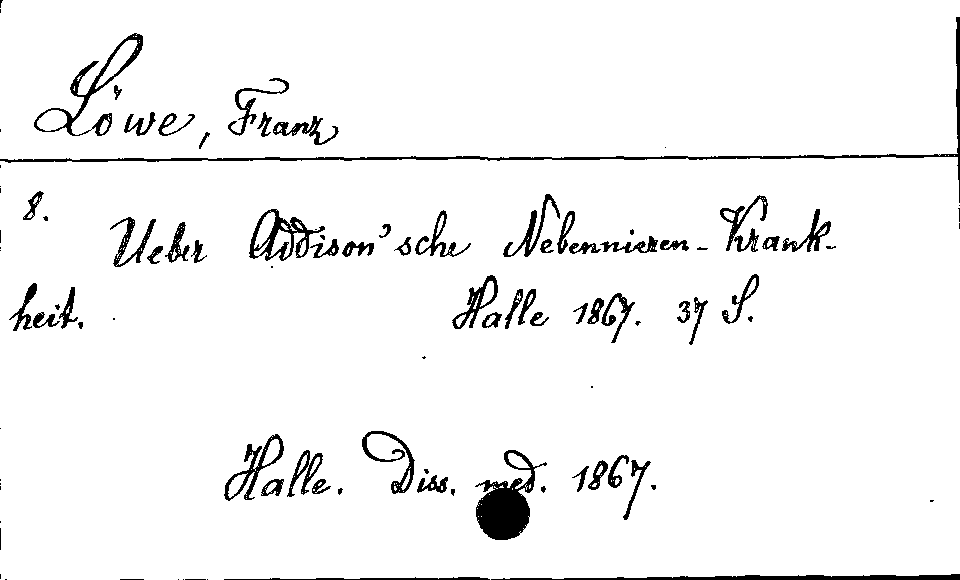 Löwe, Franz
8.
Ueber Addison'sche Nebennieren-Krank-
heit. Halle 1867. 37 S.
Halle. Diss. med. 1867.